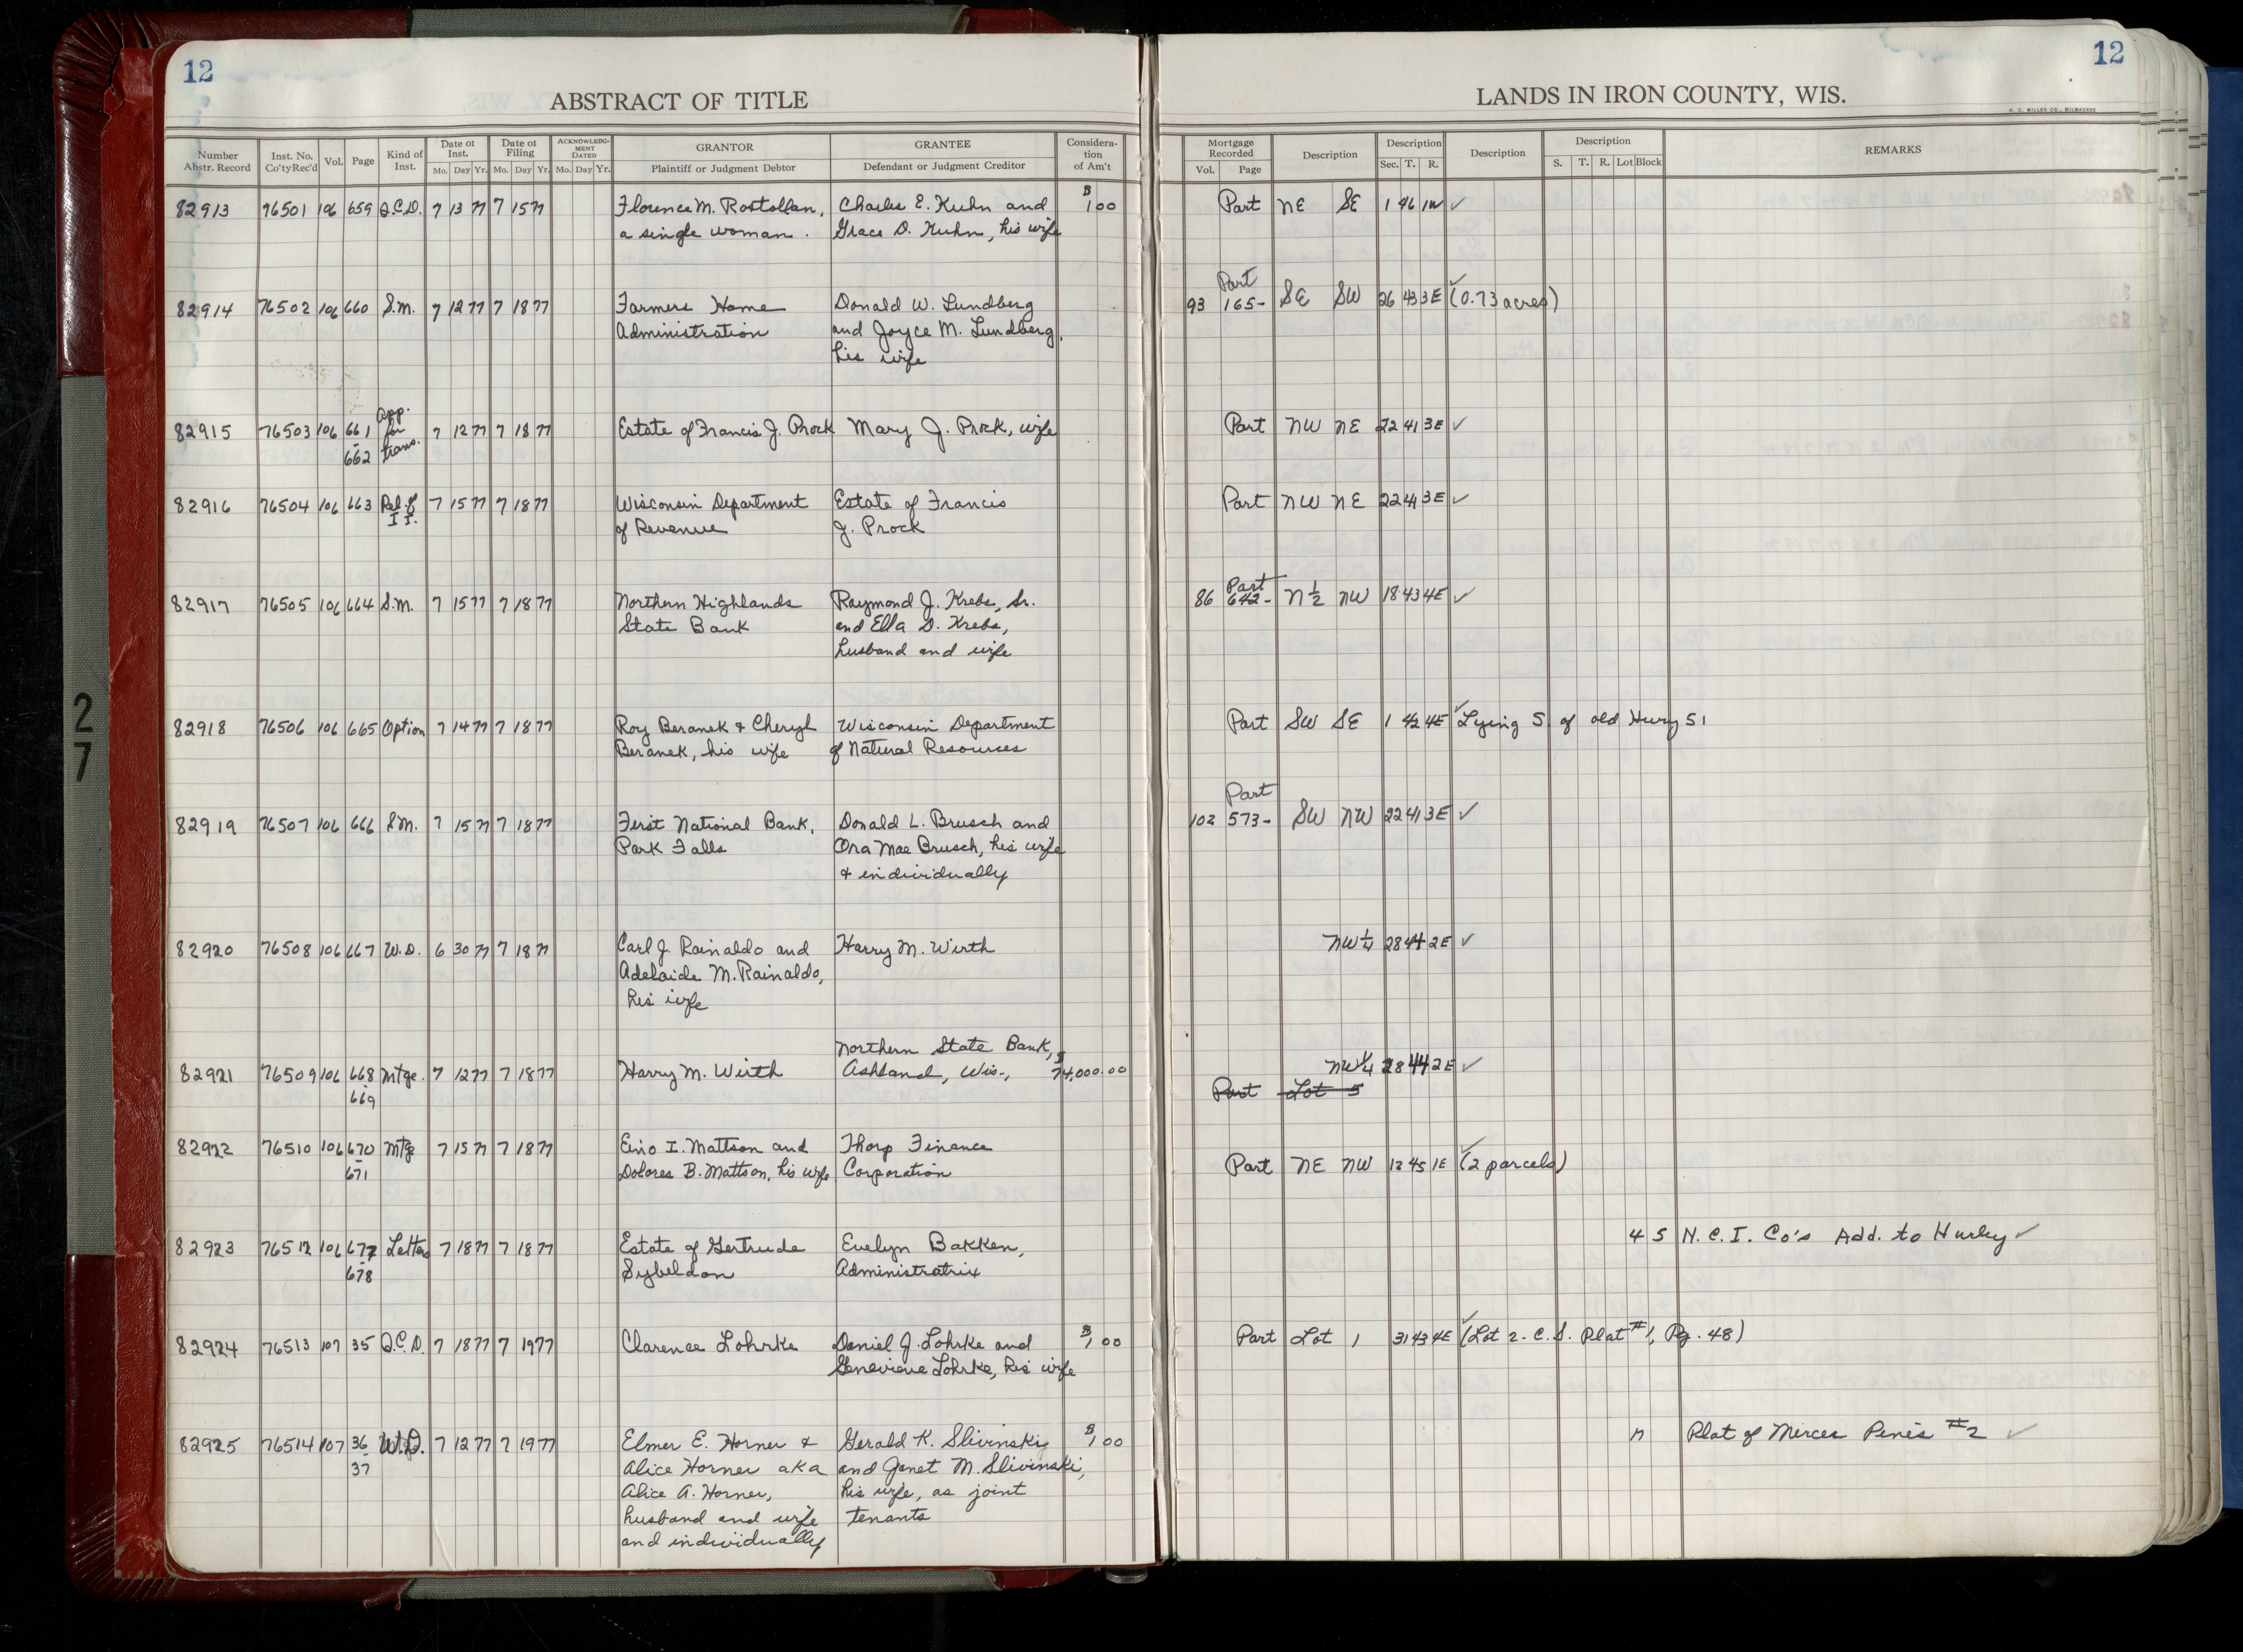 12
ABSTRACT OF TITLE
Number Abstr. Record | Inst. No. Co'ty Rec'd | Vol. | Page | Kind of Inst. | Date of Inst. Mo. Day Yr. | Date of Filing Mo. Day Yr. | ACKNOWLEDG-MENT DATED Mo. Day Yr. | GRANTOR Plaintiff or Judgment Debtor | GRANTEE Defendant or Judgment Creditor | Considera-tion of Am't
82913 76501 106 659 Q.C.D. 7 13 77 7 15 77 Florence M. Rostollan, Charles E. Kuhn and $1 00
a single woman. Grace D. Kuhn, his wife
82914 76502 106 660 S.M. 7 12 77 7 18 77 Farmers Home Donald W. Lundberg
Administration and Joyce M. Lundberg,
his wife
82915 76503 106 661-662 App. for trans. 7 12 77 7 18 77 Estate of Francis J. Prock Mary J. Prock, wife
82916 76504 106 663 Rel. of I.I. 7 15 77 7 18 77 Wisconsin Department Estate of Francis
of Revenue J. Prock
82917 76505 106 664 S.M. 7 15 77 7 18 77 Northern Highlands Raymond J. Krebs, Sr.
State Bank and Ella D. Krebs,
husband and wife
82918 76506 106 665 Option 7 14 77 7 18 77 Roy Beranek & Cheryl Wisconsin Department
Beranek, his wife of Natural Resources
82919 76507 106 666 S.M. 7 15 77 7 18 77 First National Bank, Donald L. Brusch and
Park Falls Ora Mae Brusch, his wife
& individually
82920 76508 106 667 W.D. 6 30 77 7 18 77 Carl J. Rainaldo and Harry M. Wirth
Adelaide M. Rainaldo,
his wife
Northern State Bank,
82921 76509 106 668-669 Mtge. 7 12 77 7 18 77 Harry M. Wirth Ashland, Wis., $74,000.00
82922 76510 106 670-671 Mtge 7 15 77 7 18 77 Eino I. Mattson and Thorp Finance
Dolores B. Mattson, his wife Corporation
82923 76512 106 677-678 Letters 7 18 77 7 18 77 Estate of Gertrude Evelyn Bakken,
Sybeldon Administratrix
82924 76513 107 35 Q.C.D. 7 18 77 7 19 77 Clarence Lohrke Daniel J. Lohrke and $1 00
Genevieve Lohrke, his wife
82925 76514 107 36-37 W.D. 7 12 77 7 19 77 Elmer E. Horner & Gerald K. Slivinski $1 00
Alice Horner aka and Janet M. Slivinski,
Alice A. Horner, his wife, as joint
husband and wife tenants
and individually
12
LANDS IN IRON COUNTY, WIS.
H. C. MILLER CO., MILWAUKEE
Mortgage Recorded Vol. Page | Description | Description Sec. T. R. | Description | Description S. T. R. Lot Block | REMARKS
Part NE SE 1 46 1W ✓
Part
93 165- SE SW 26 43 3E ✓ (0.73 acres)
Part NW NE 22 41 3E ✓
Part NW NE 22 41 3E ✓
Part
86 642- N 1/2 NW 18 43 4E ✓
Part SW SE 1 42 4E ✓ Lying S. of old Hwy 51
Part
102 573- SW NW 22 41 3E ✓
NW 1/4 28 44 2E ✓
NW 1/4 28 44 2E ✓
Part Lot 5
Part NE NW 12 45 1E ✓ (2 parcels)
4 5 N.C.I. Co's Add. to Hurley ✓
Part Lot 1 31 43 4E ✓ (Lot 2. C.S. Plat #1, Pg. 48)
Plat of Mercer Pines #2 ✓
27